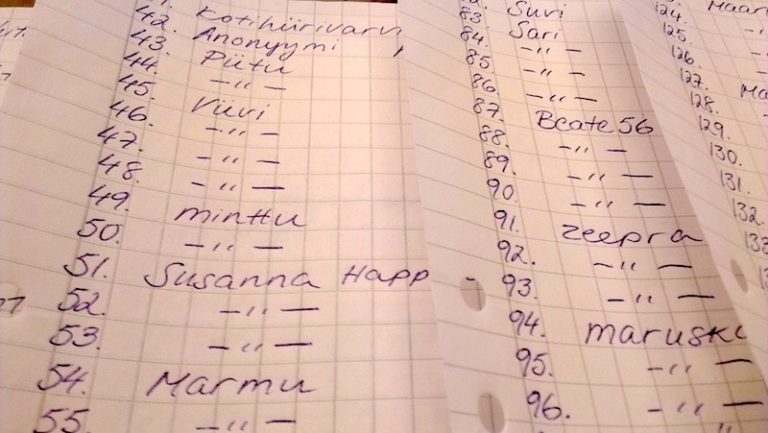 42. Anonyymi
43. Piitu
44. -"-
45. Viivi
46. -"-
47. -"-
48. -"-
49. minttu
50. -"-
51. Susanna Happ
52. -"-
53. -"-
54. Marmu
55. -"-
Suvi
83. Sari
84. -"-
85. -"-
86. -"-
87. Beate56
88. -"-
89. -"-
90. -"-
91. zeepra
92. -"-
93. -"-
94. maruski
95. -"-
96. -"-
124.
125.
126.
127.
128.
129.
130.
131.
132.
133